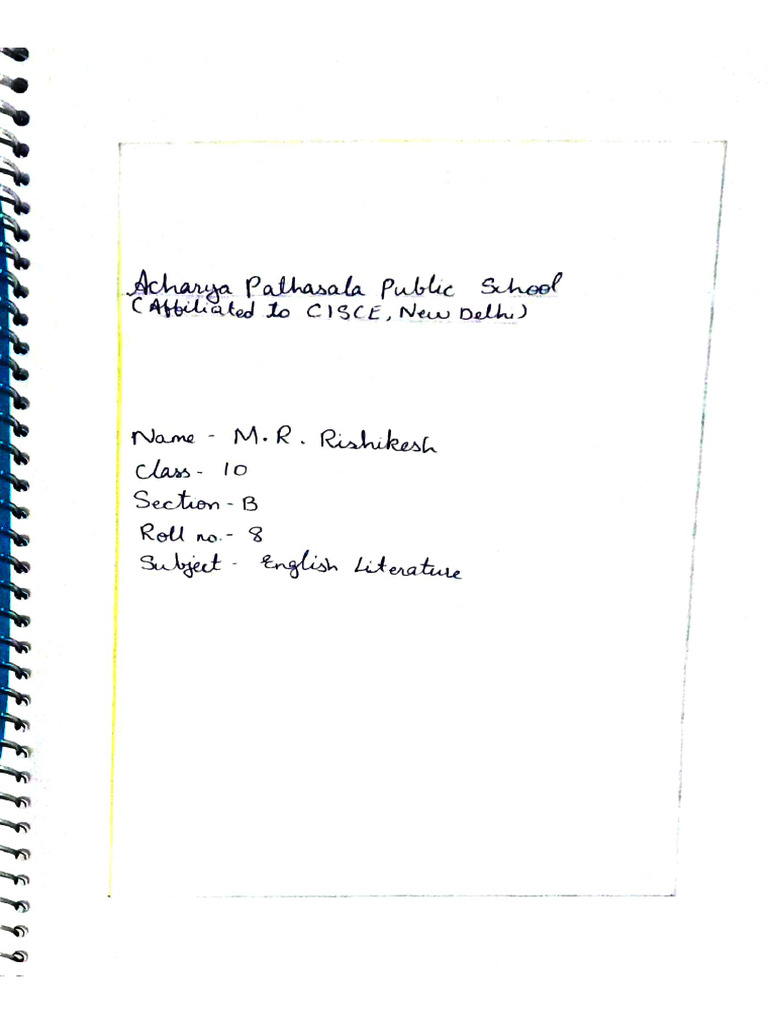 Acharya Pathasala Public School
(Affiliated to CISCE, New Delhi)
Name - M. R. Rishikesh
Class - 10
Section - B
Roll no. - 8
Subject - English Literature